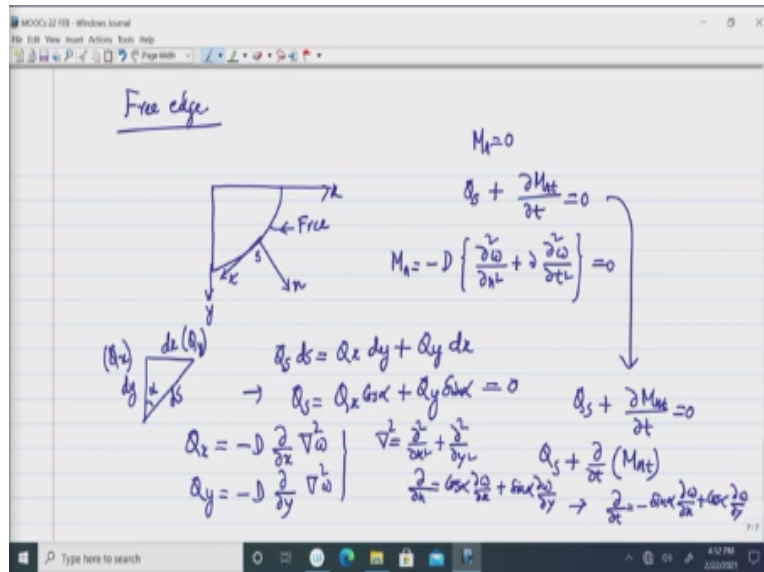 MOOCs 22 FEB - Windows Journal
File Edit View Insert Actions Tools Help
Page Width
Free edge
x
← Free
s
t
n
y
Mn=0
Qs + ∂Mnt/∂t =0
Mn = -D { ∂²ω/∂n² + ∂ ∂²ω/∂t² } =0
(Qx)
dx (Qy)
dy
α
ds
Qs ds = Qx dy + Qy dx
→ Qs = Qx Cosα + Qy Sinα = 0
Qx = -D ∂/∂x ∇²ω
Qy = -D ∂/∂y ∇²ω
∇² = ∂²/∂x² + ∂²/∂y²
∂/∂n = Cosα ∂ω/∂x + Sinα ∂ω/∂y → ∂/∂t = -Sinα ∂ω/∂x + Cosα ∂ω/∂y
Qs + ∂Mnt/∂t =0
Qs + ∂/∂t (Mnt)
7/7
Type here to search
4:52 PM
2/22/2021